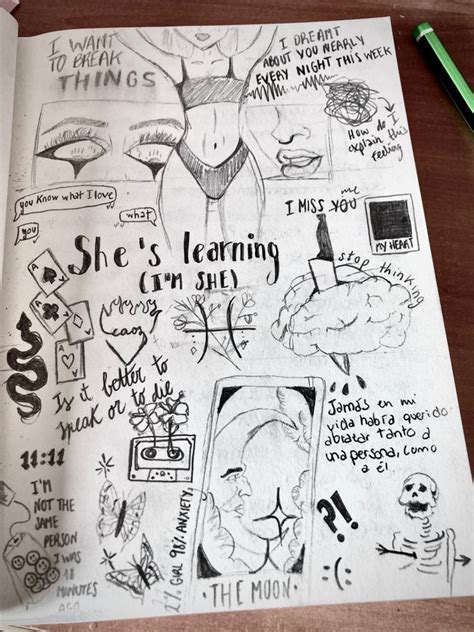 I WANT
TO BREAK
THINGS
I DREAMT
ABOUT YOU NEARLY
EVERY NIGHT THIS WEEK
HOW do I
explain this
feeling
you know what I love
what
you
I MISS YOU
me
MY HEART
She's learning
(I'M SHE)
stop thinking
A
A
A
A
caos
Is it better to
speak or to die
Jamás en mi
vida habra querido
abrazar tanto
a una persona, como
a él.
11:11
I'M
NOT THE
SAME
PERSON
I WAS
18
MINUTES
AGO
2% GIRL 98% ANXIETY
?!
:(
·THE MOON·